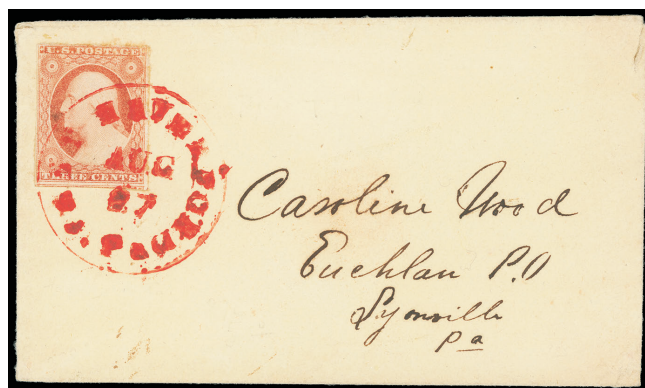 U.S. POSTAGE
THREE CENTS
AUG
27
Caroline Wood
Euchlan P.O
Lyonville
Pa